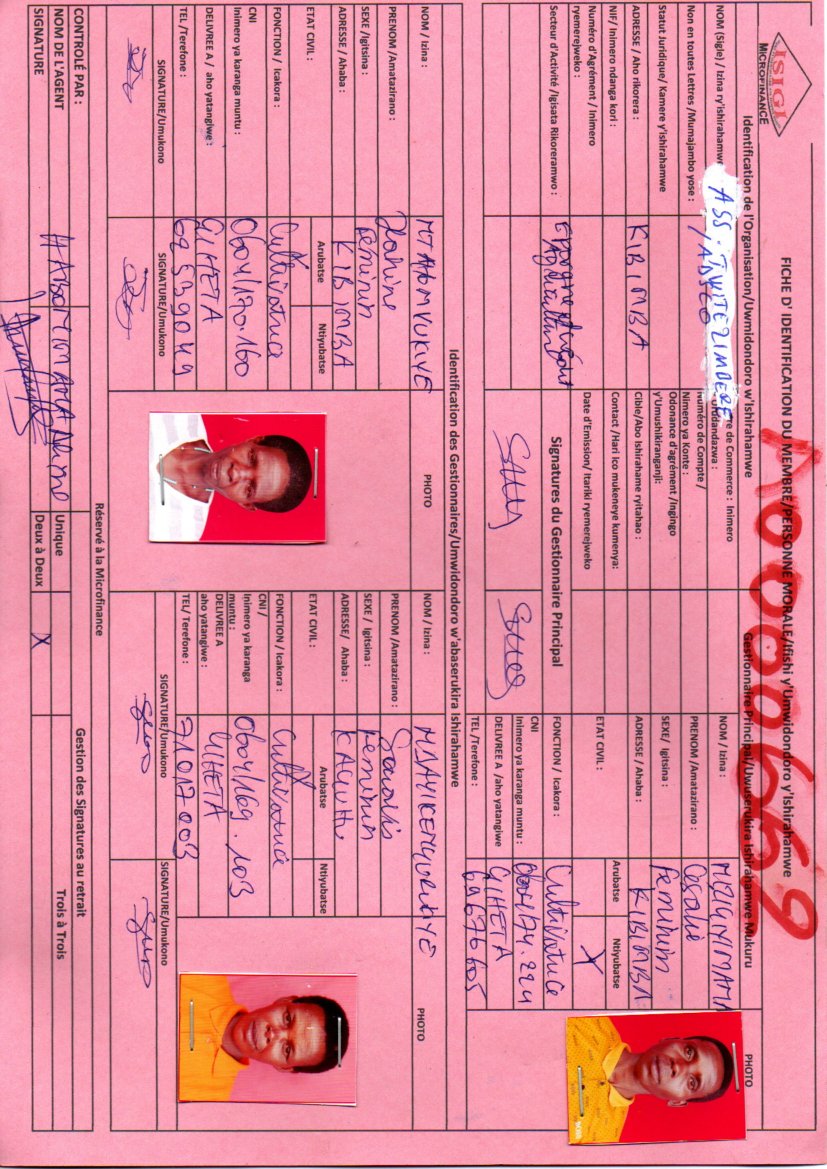 ISIGI
MICROFINANCE
FICHE D' IDENTIFICATION DU MEMBRE/PERSONNE MORALE/Ifishi y'Umwidondoro y'Ishirahamwe
Identification de l'Organisation/Uwmidondoro w'Ishirahamwe
Gestionnaire Principal/Uwuserukira Ishirahamwe Mukuru
NOM (Sigle) / Izina ry'ishirahamwe
ASS. TWITEZIMBERE
Non en toutes Lettres /Mumajambo yose :
Statut Juridique/ Kamere y'ishirahamwe
ADRESSE / Aho rikorera :
KIBIMBA
NIF/ Inimero ndanga kori :
Numéro d'Agrément / Inimero
ryemerejweko :
Secteur d'Activité /Igisata Rikoreramwo :
re de Commerce : Inimero
Numéro de Compte /
Nimero ya Konte :
Odonance d'agrément /Ingingo
y'Umushikiranganji:
Cible/Abo Ishirahame ryitahao :
Contact /Hari ico mukeneye kumenya:
Date d'Emission/ Itariki ryemerejweko
Signatures du Gestionnaire Principal
NOM / Izina :
PHOTO
PRENOM /Amatazirano :
SEXE/ Igitsina :
Feminin
ADRESSE / Ahaba :
KIBIMBA
ETAT CIVIL :
Arubatse
Ntiyubatse
X
FONCTION / Icakora :
Cultivatrice
CNI
Inimero ya karanga muntu :
0604/74.224
DELIVREE A /aho yatangiwe
GIHETA
TEL /Terefone :
69676605
Identification des Gestionnaires/Umwidondoro w'abaserukira Ishirahamwe
NOM / Izina :
PHOTO
PRENOM /Amatazirano :
SEXE /Igitsina :
Feminin
ADRESSE / Ahaba :
KIBIMBA
ETAT CIVIL :
Arubatse
Ntiyubatse
FONCTION / Icakora :
Cultivatrice
CNI
Inimero ya karanga muntu :
0604/170.160
DELIVREE A / aho yatangiwe :
GIHETA
TEL /Terefone :
69539049
SIGNATURE/Umukono
SIGNATURE/Umukono
NOM / Izina :
NDAYIKENGURUKIYE
PHOTO
PRENOM /Amatazirano :
SEXE / Igitsina :
Feminin
ADRESSE/ Ahaba :
ETAT CIVIL :
Arubatse
Ntiyubatse
FONCTION / Icakora :
Cultivatrice
CNI /
Inimero ya karanga
muntu :
0604/169.103
DELIVREE A
aho yatangiwe :
GIHETA
TEL/ Terefone :
71017003
SIGNATURE/Umukono
SIGNATURE/Umukono
Réservé à la Microfinance
CONTROLÉ PAR :
Gestion des Signatures au retrait
NOM DE L'AGENT
Unique
Trois à Trois
SIGNATURE
Deux à Deux
X